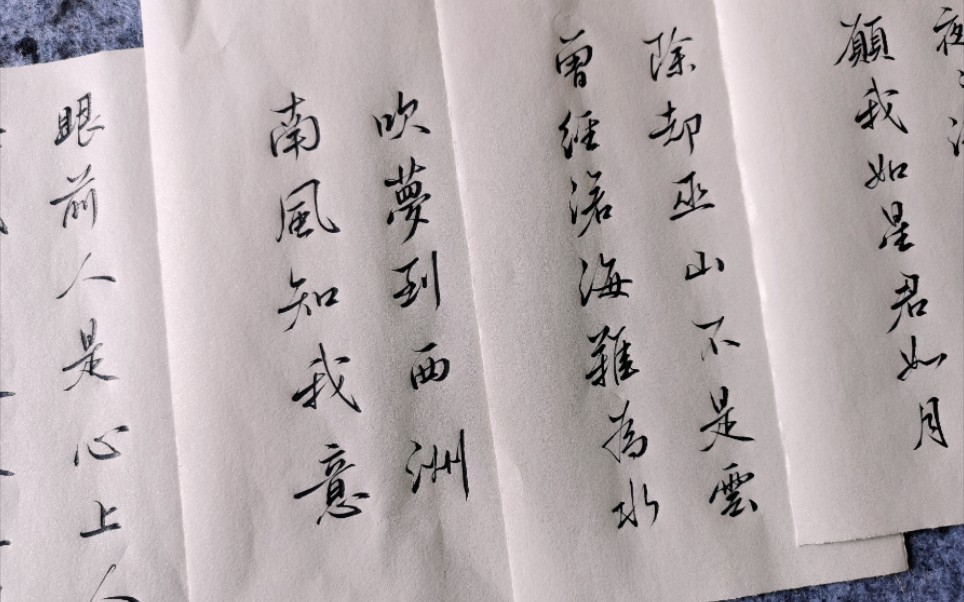 眼前人是心上人
南風知我意
吹夢到西洲
曾經滄海難為水
除却巫山不是雲
願我如星君如月
夜